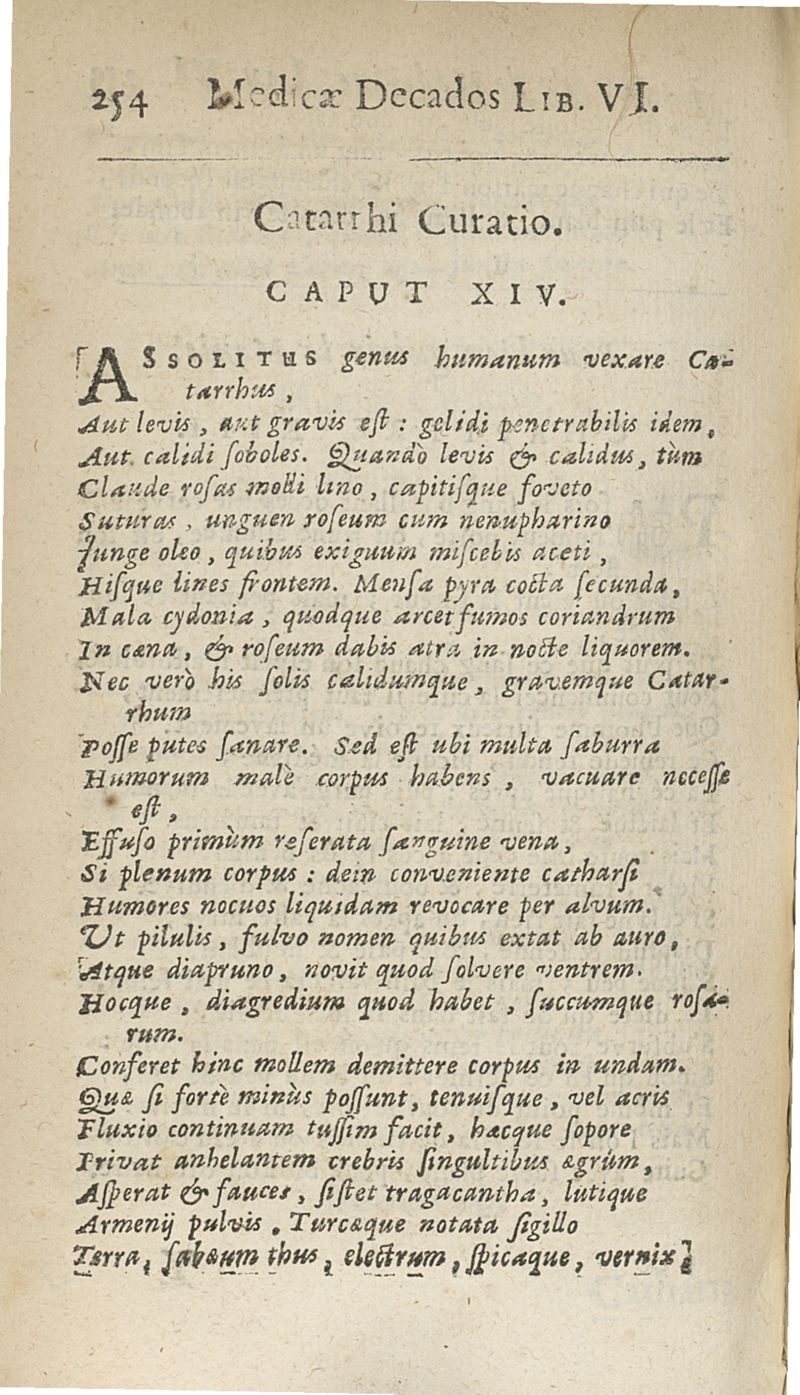 254 Medicæ Decados LIB. VI.
Catarrhi Curatio.
CAPUT XIV.
ASSOLITUS genus humanum vexare Ca-
tarrhus,
Aut levis, aut gravis eſt : gelidi penetrabilis idem,
Aut calidi ſoboles. Quandò levis & calidus, tùm
Claude roſas molli lino, capitiſque foveto
Suturas, unguen roſeum cum nenupharino
Junge oleo, quibus exiguum miſcebis aceti,
Hiſque lines frontem. Menſa pyra cocta ſecunda,
Mala cydonia, quodque arcet fumos coriandrum
In cœna, & roſeum dabis atra in nocte liquorem.
Nec verò his ſolis calidumque, gravemque Catar-
rhum
Poſſe putes ſanare. Sed eſt ubi multa ſaburra
Humorum malè corpus habens, vacuare neceſſe
eſt,
Effuſo primùm reſerata ſanguine vena,
Si plenum corpus : dein conveniente catharſi
Humores nocuos liquidam revocare per alvum.
Ut pilulis, fulvo nomen quibus extat ab auro,
Atque diapruno, novit quod ſolvere ventrem.
Hocque, diagredium quod habet, ſuccumque roſa-
rum.
Conferet hinc mollem demittere corpus in undam.
Quæ ſi fortè minùs poſſunt, tenuiſque, vel acris
Fluxio continuam tuſſim facit, hacque ſopore
Privat anhelantem crebris ſingultibus ægrùm,
Aſperat & fauces, ſiſtet tragacantha, lutique
Armenij pulvis. Turcæque notata ſigillo
Terra, ſabæum thus, electrum, ſpicaque, vernix